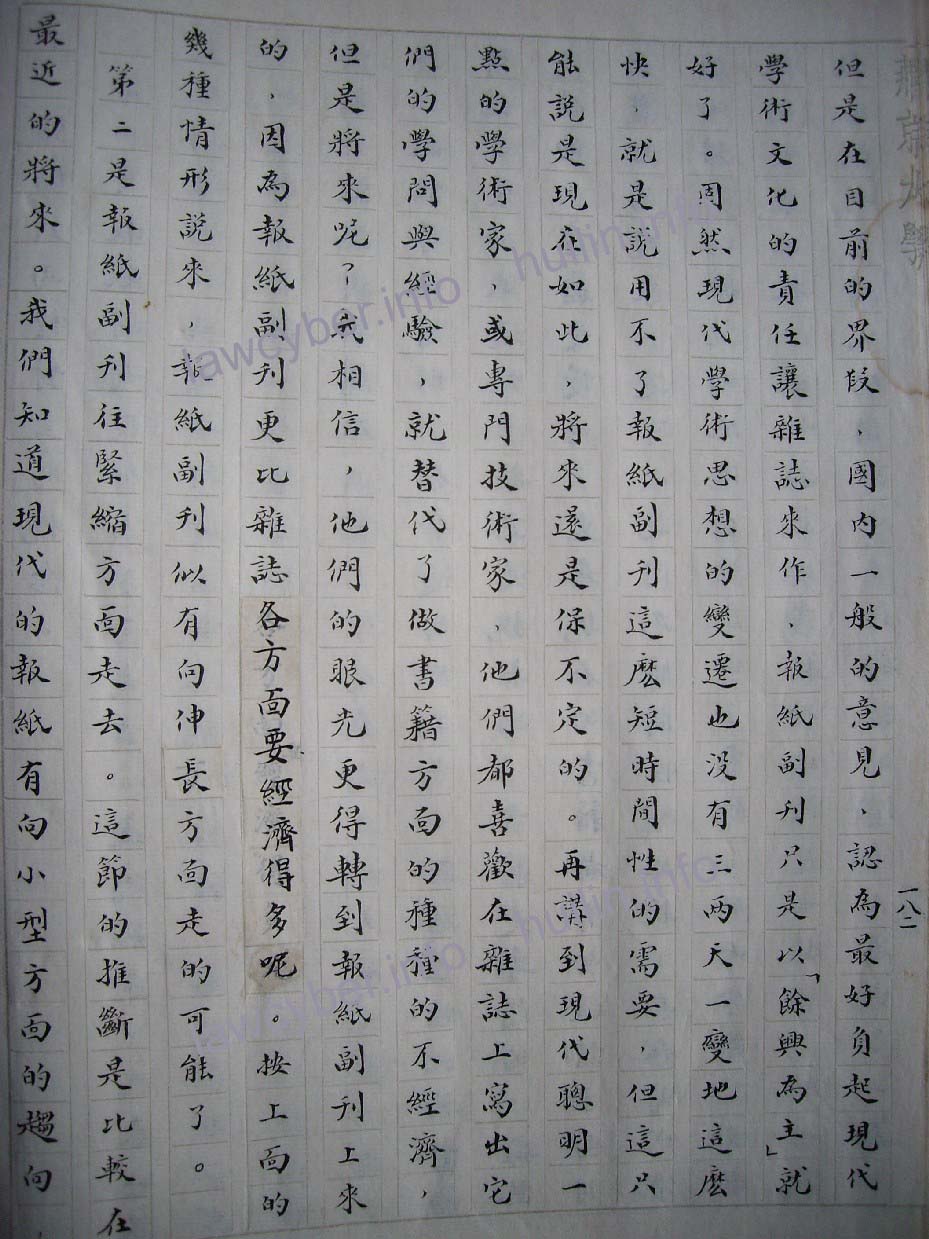 燕京大學
一八二
但是在目前的界段，國內一般的意見，認為最好負起現代
學術文化的責任讓雜誌來作，報紙副刊只是以「餘興為主」就
好了。固然現代學術思想的變遷也没有三兩天一變地這麽
快，就是說用不了報紙副刊這麽短時間性的需要，但這只
能説是現在如此，將來還是保不定的。再講到現代聰明一
點的學術家，或專門技術家，他們都喜歡在雜誌上寫出它
們的學問與經驗，就替代了做書籍方面的種種的不經濟，
但是將來呢？我相信，他們的眼光更得轉到報紙副刊上來
的，因為報紙副刊更比雜誌各方面要經濟得多呢。按上面的
幾種情形說來，報紙副刊似有向伸長方面走的可能了。
第二是報紙副刊往緊縮方面走去。這節的推斷是比較在
最近的將來。我們知道現代的報紙有向小型方面的趨向，
lawcyber.info - hulin.info
lawcyber.info - hulin.info